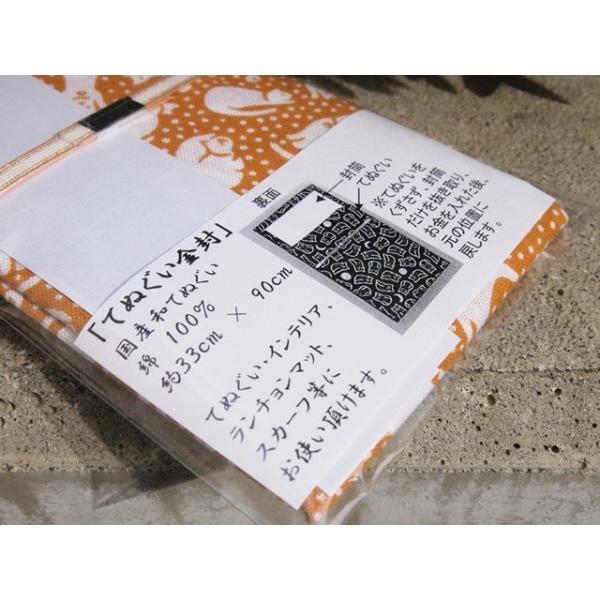 「てぬぐい金封」
国産和てぬぐい
綿 100%
約33cm × 90cm
てぬぐい・インテリア、
ランチョンマット、
スカーフ等に
お使い頂けます。
裏面
封筒
てぬぐい
※てぬぐいを
くずさず、封筒
だけを抜き取り、
お金を入れた後、
元の位置に
戻します。